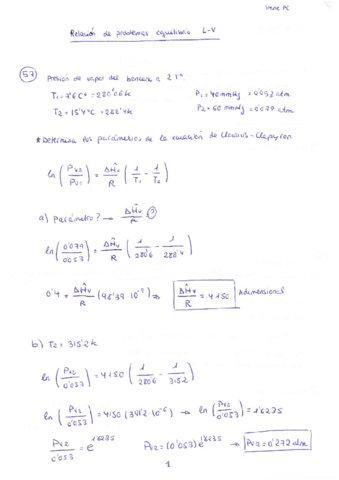 Relación de problemas equilibrio L-V
57 Presión de vapor del benceno a 2 Tª.
T₁ = 7'6 Cº = 280'6 k P₁ = 40 mmHg = 0'053 atm
T₂ = 15'4ºC = 288'4 k P₂ = 60 mmHg = 0'079 atm
* Determina los parámetros de la ecuación de Clasius-Clapeyron
ln (Pv2/Pv1) = ΔĤv/R (1/T₁ - 1/T₂)
a) Parámetro? → ΔĤv/R ?
ln (0'079/0'053) = ΔĤv/R (1/280'6 - 1/288'4)
0'4 = ΔĤv/R (96'39 10⁻⁶) ⇒ ΔĤv/R = 4150 Adimensional
b) T₂ = 315'2 k
ln (Pv2/0'053) = 4150 (1/280'6 - 1/315'2)
ln (Pv2/0'053) = 4150 (391'2 10⁻⁶) → ln (Pv2/0'053) = 1'6235
Pv2/0'053 = e^1'6235 Pv2 = (0'053) e^1'6235 → Pv2 = 0'272 atm
1